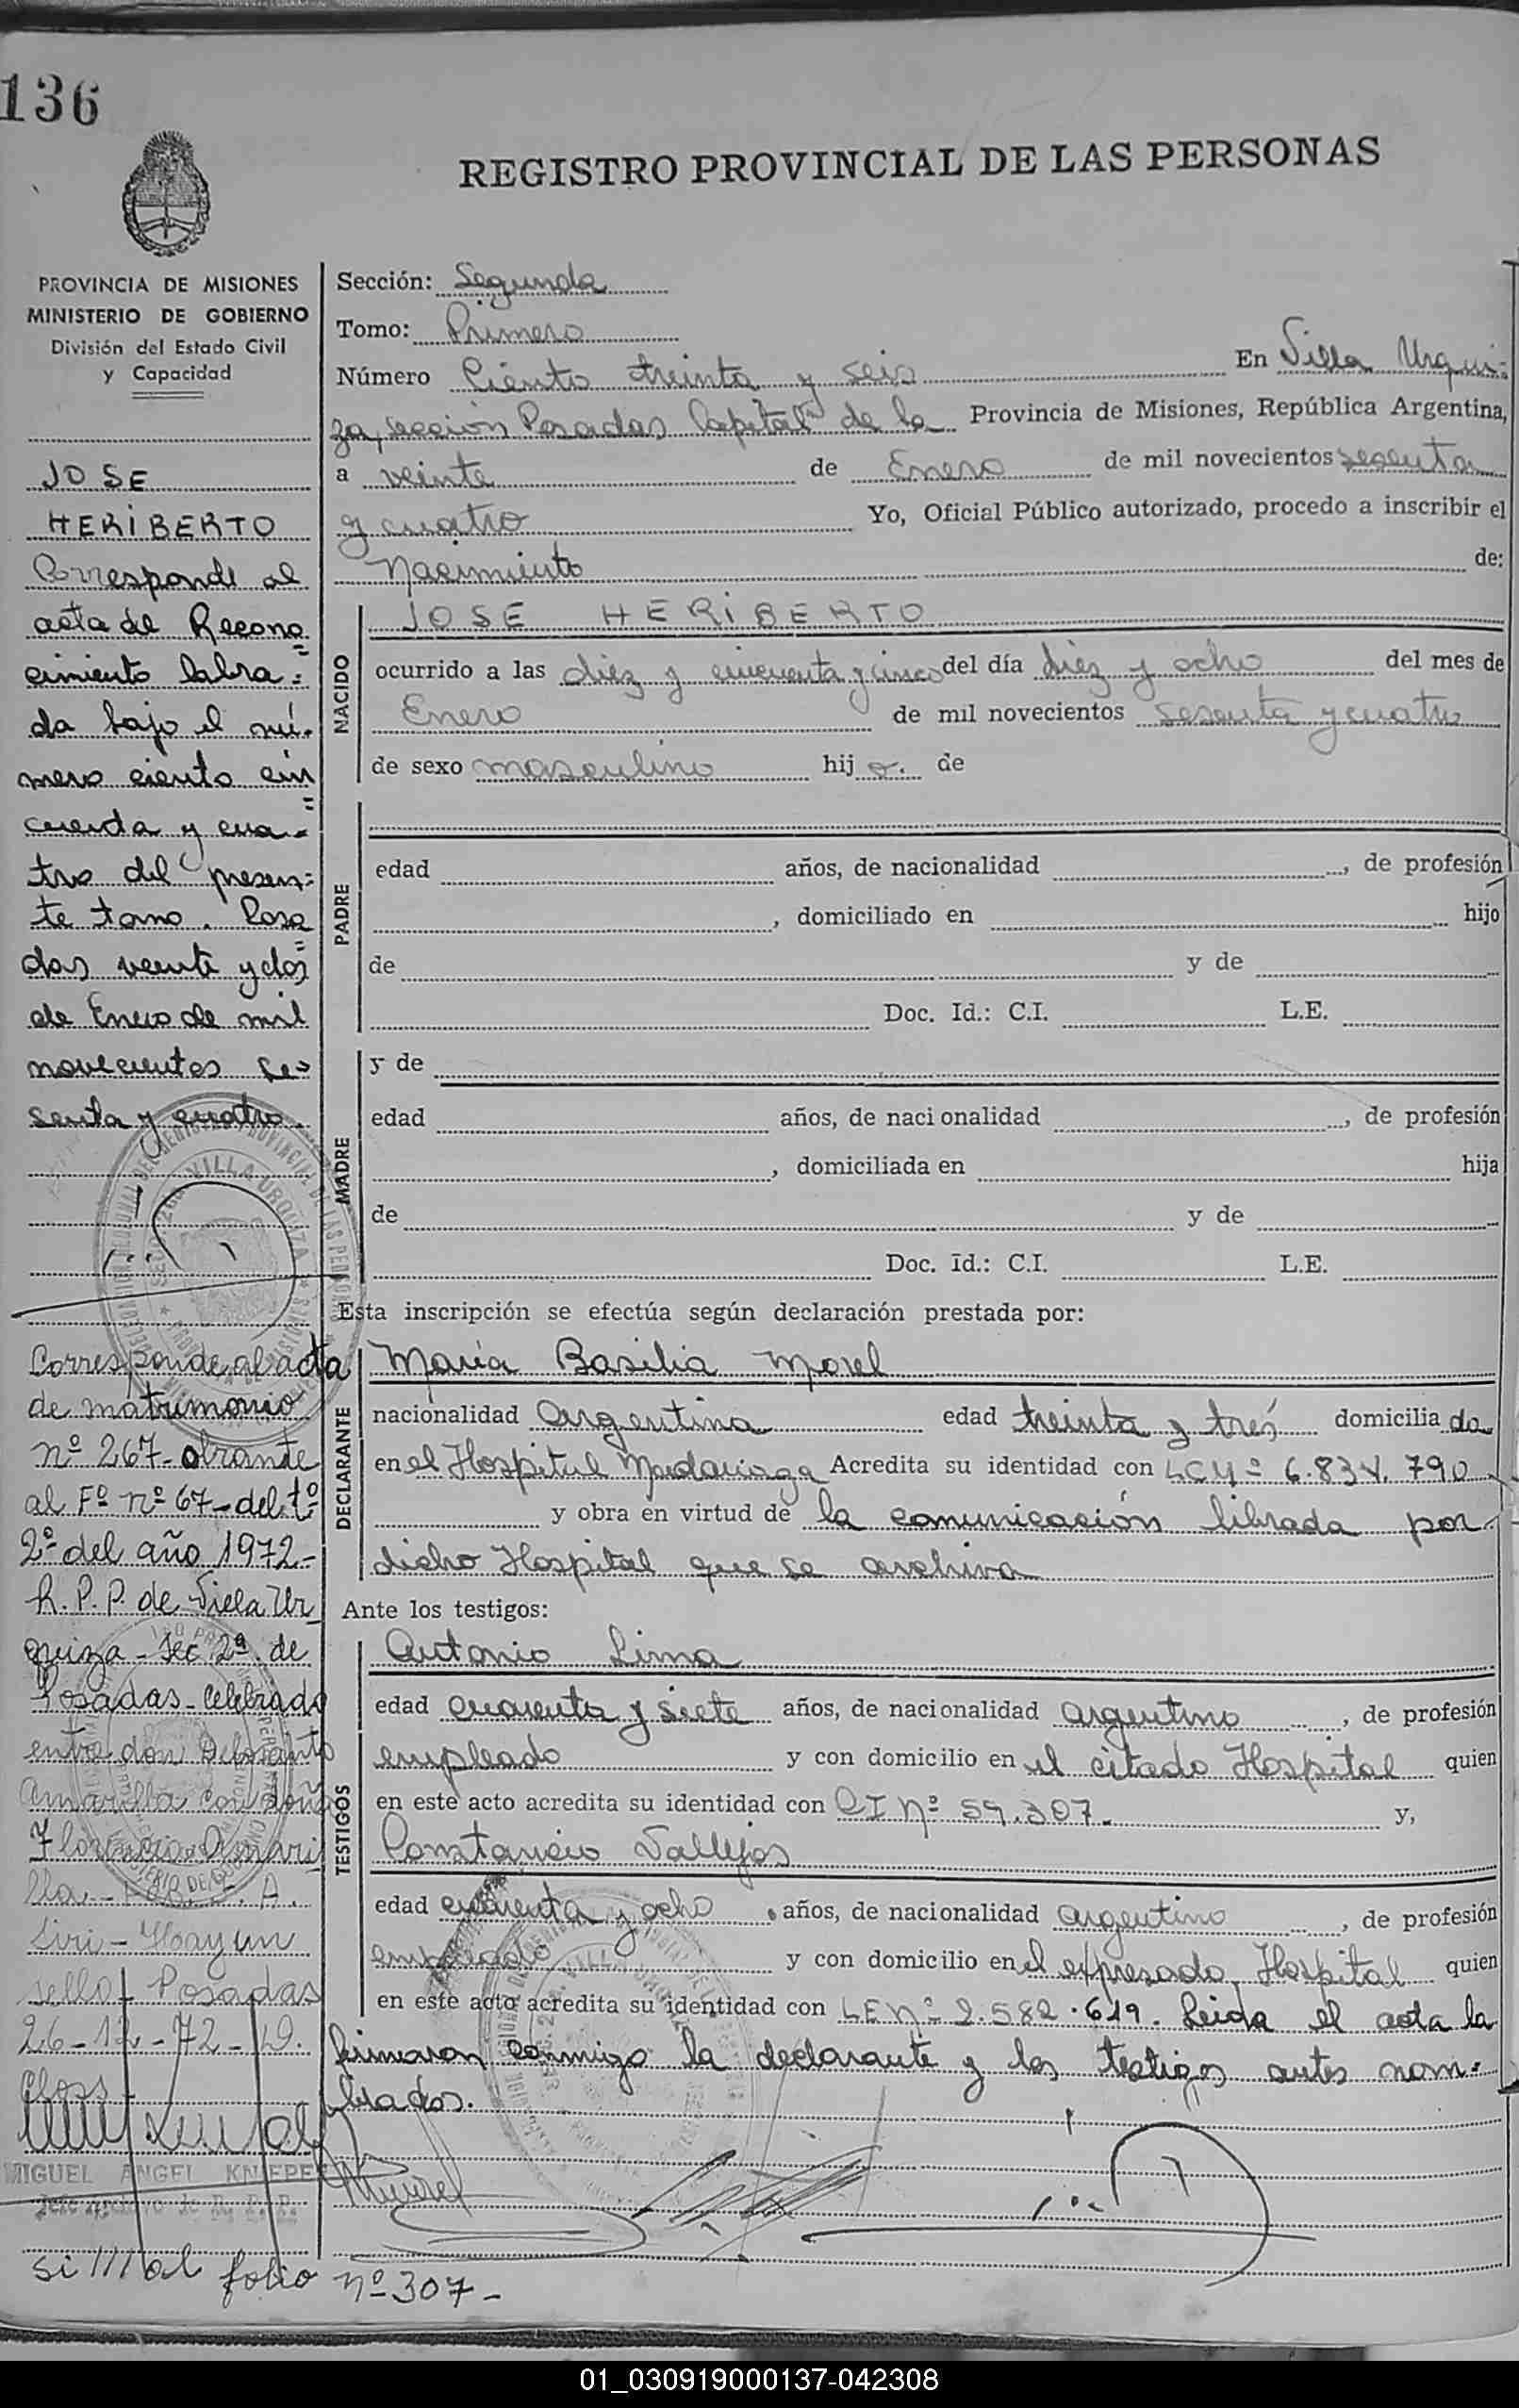 136
REGISTRO PROVINCIAL DE LAS PERSONAS
PROVINCIA DE MISIONES
MINISTERIO DE GOBIERNO
División del Estado Civil
y Capacidad
JOSE
HERIBERTO
Corresponde al
acta de Recono=
cimiento labra=
da bajo el nú-
mero ciento cin=
cuenta y cua=
tro del presen=
te tomo. Posa=
das veinte y dos
de Enero de mil
novecientos se=
senta y cuatro.
Corresponde al acta
de matrimonio
nº 267- obrante
al Fº nº 67- del tº
2º del año 1972-
R. P. P. de Villa Ur
quiza - Sec. 2ª. de
Posadas - Celebrado
entre don
Amarilla con doña
Florencia Amari
lla
Siri - Hay un
sello - Posadas
26-12-72-
MIGUEL ANGEL
Jefe Archivo de R. P. P.
Sección: Segunda
Tomo: Primero
Número Ciento treinta y seis En Villa Urqui=
za, sección Posadas Capital de la Provincia de Misiones, República Argentina,
a veinte de Enero de mil novecientos sesenta
y cuatro Yo, Oficial Público autorizado, procedo a inscribir el
Nacimiento de:
NACIDO
JOSE HERIBERTO
ocurrido a las diez y cincuenta y cinco del día diez y ocho del mes de
Enero de mil novecientos sesenta y cuatro
de sexo masculino hijo. de
PADRE
edad años, de nacionalidad , de profesión
, domiciliado en hijo
de y de
Doc. Id.: C.I. L.E.
MADRE
y de
edad años, de naci onalidad , de profesión
, domiciliada en hija
de y de
Doc. Id.: C.I. L.E.
Esta inscripción se efectúa según declaración prestada por:
DECLARANTE
María Basilia Morel
nacionalidad argentina edad treinta y tres domiciliada
en el Hospital Madariaga Acredita su identidad con LC Nº 6.834.790
y obra en virtud de la comunicación librada por
dicho Hospital que se archiva
Ante los testigos:
TESTIGOS
Antonio Lima
edad cuarenta y siete años, de nacionalidad argentino, de profesión
empleado y con domicilio en el citado Hospital quien
en este acto acredita su identidad con CI Nº 59.307. y,
Constancio Vallejos
edad cuarenta y ocho años, de nacionalidad argentino, de profesión
empleado y con domicilio en el expresado Hospital quien
en este acto acredita su identidad con LE Nº 2.582.619. Leida el acta la
firmaron conmigo la declarante y los testigos antes nom=
brados.
si///al folio nº 307-
01_030919000137-042308